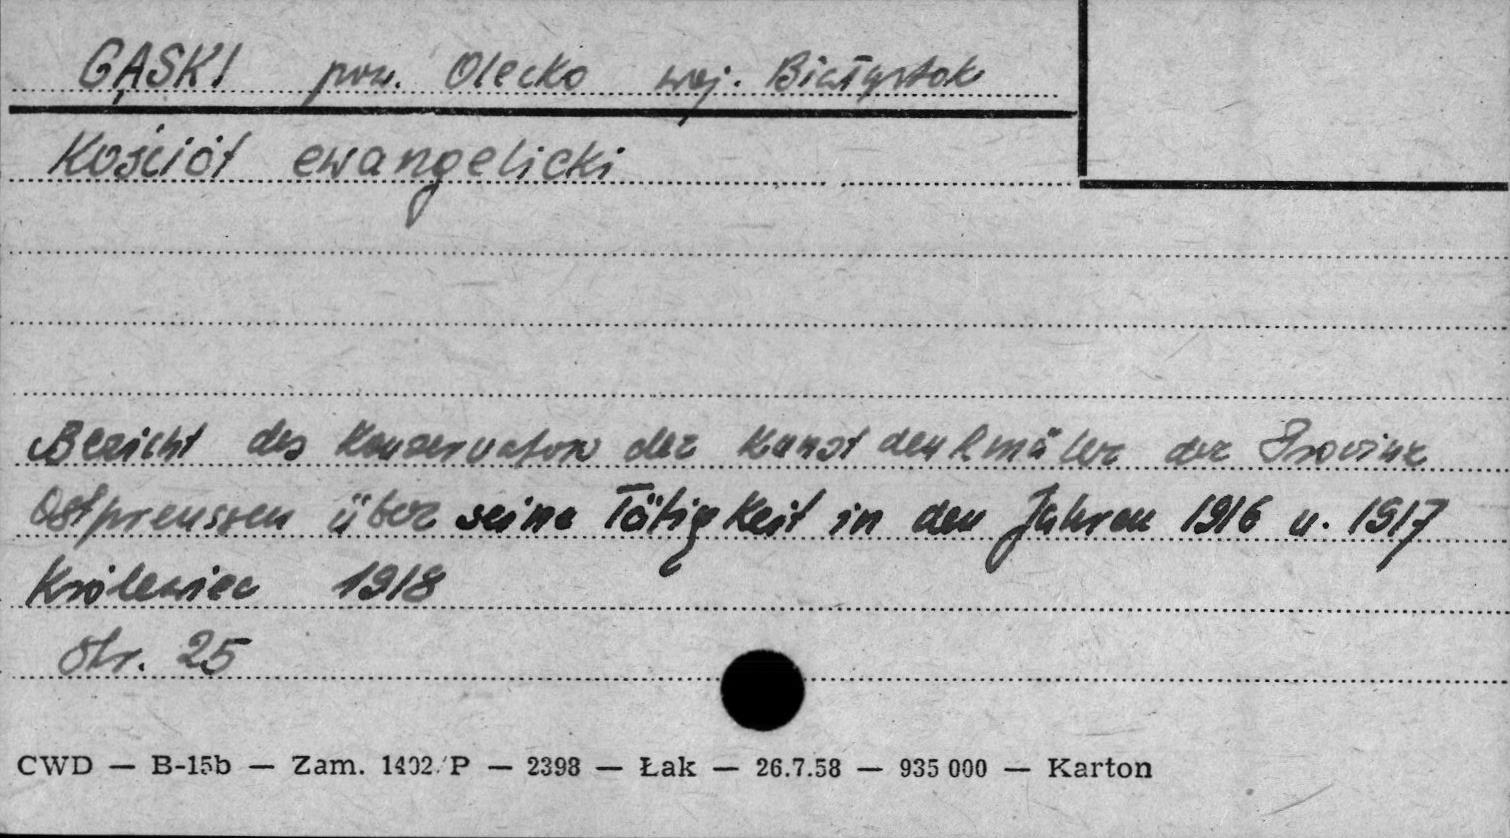 GĄSKI pow. Olecko woj. Białystok
Kościół ewangelicki
Bericht des Konservators der Kunstdenkmäler der Provinz
Ostpreussen über seine Tätigkeit in den Jahren 1916 u. 1917
Królewiec 1918
Str. 25
CWD — B-15b — Zam. 1402/P — 2398 — Łak — 26.7.58 — 935 000 — Karton